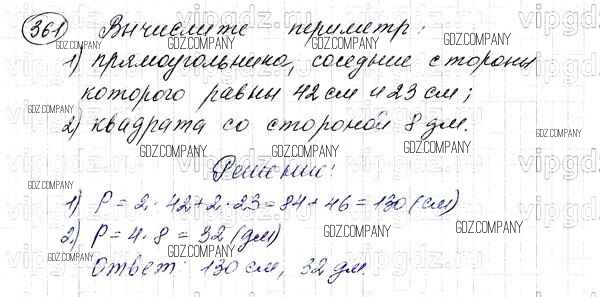 361 Вычислите периметр:
1) прямоугольника, соседние стороны
которого равны 42 см и 23 см;
2) квадрата со стороной 8 дм.
Решение:
1) P = 2 · 42 + 2 · 23 = 84 + 46 = 130 (см)
2) P = 4 · 8 = 32 (дм)
Ответ: 130 см, 32 дм.